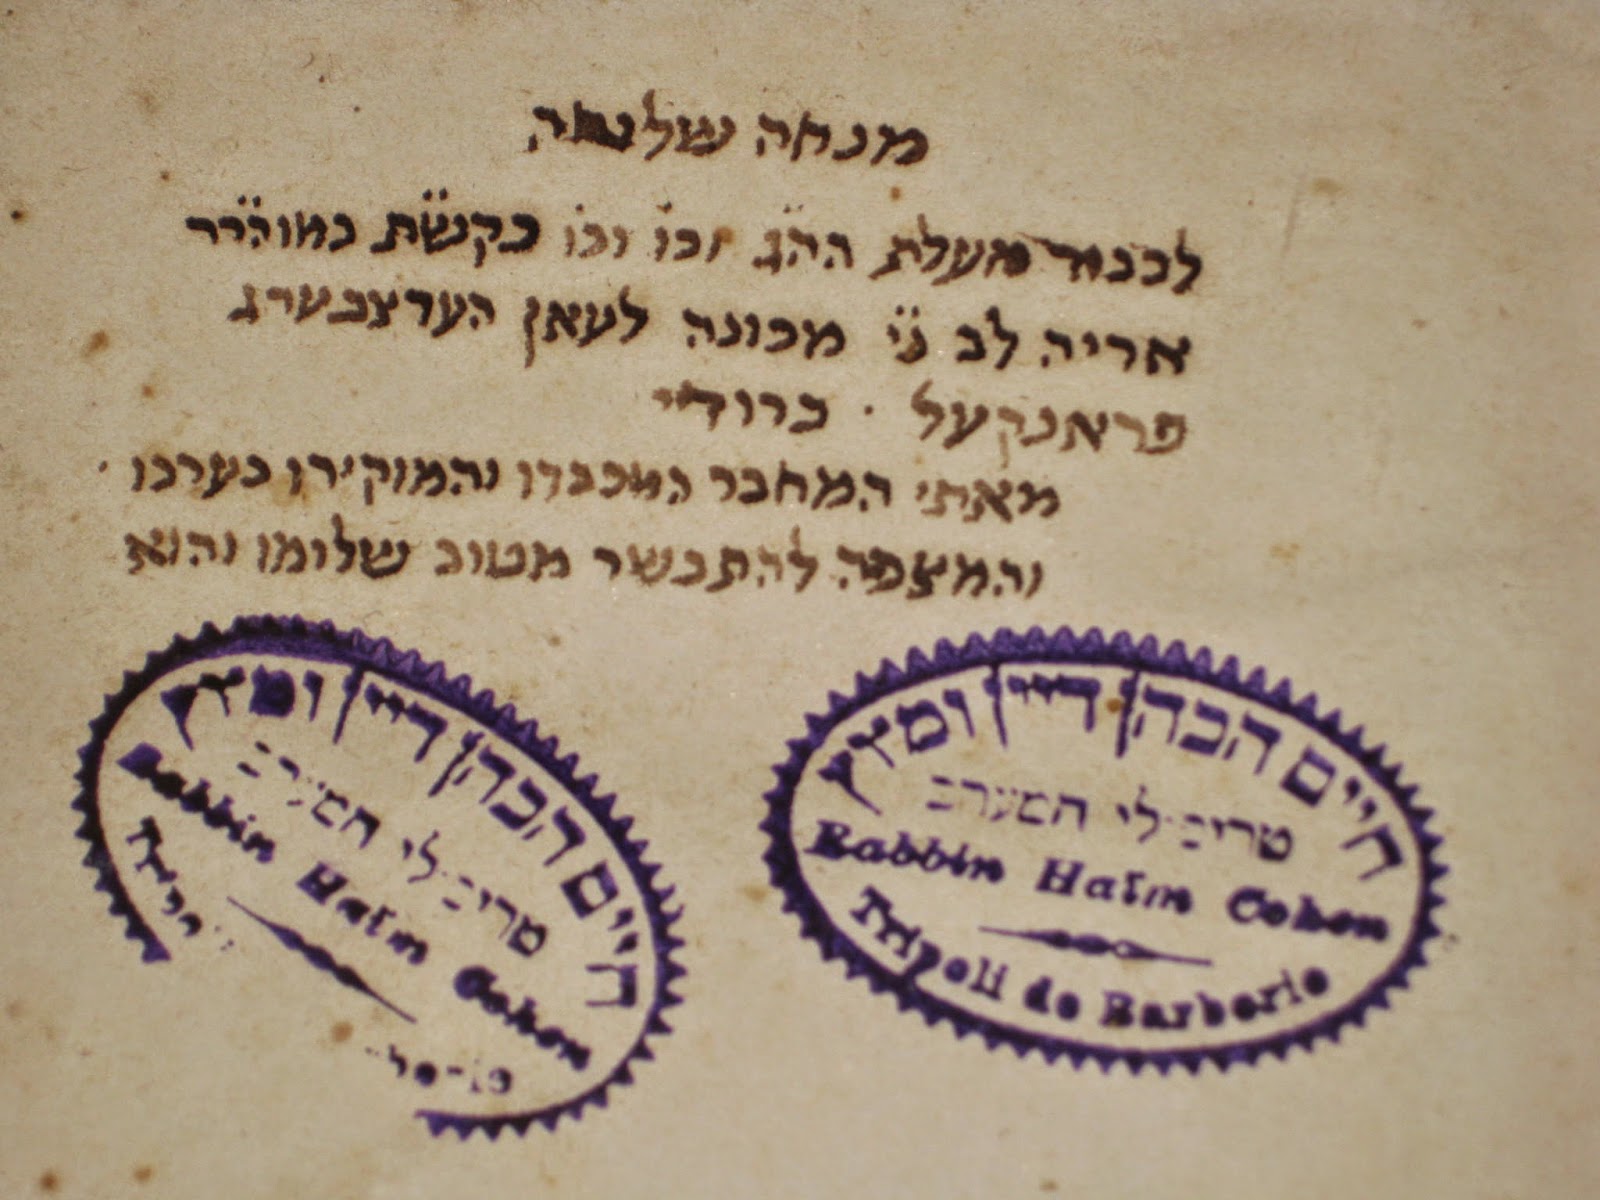 מנחה שלוחה
לכבוד מעלת ההג׳ וכו׳ וכו׳ כקש״ת כמוה״רר
אריה לב נ״י מכונה לעאן הערצבערג
פראנקעל · ברודיי
מאתי המחבר המכבדו והמוקירו כערכו ·
והמצפה להתבשר מטוב שלומו והוא
חיים הכהן דיין ומו״ץ
טריפולי המערב
Rabbin Haïm Cohen
חיים הכהן דיין ומו״ץ
טריפולי המערב
Rabbin Haïm Cohen
Tripoli de Barberie